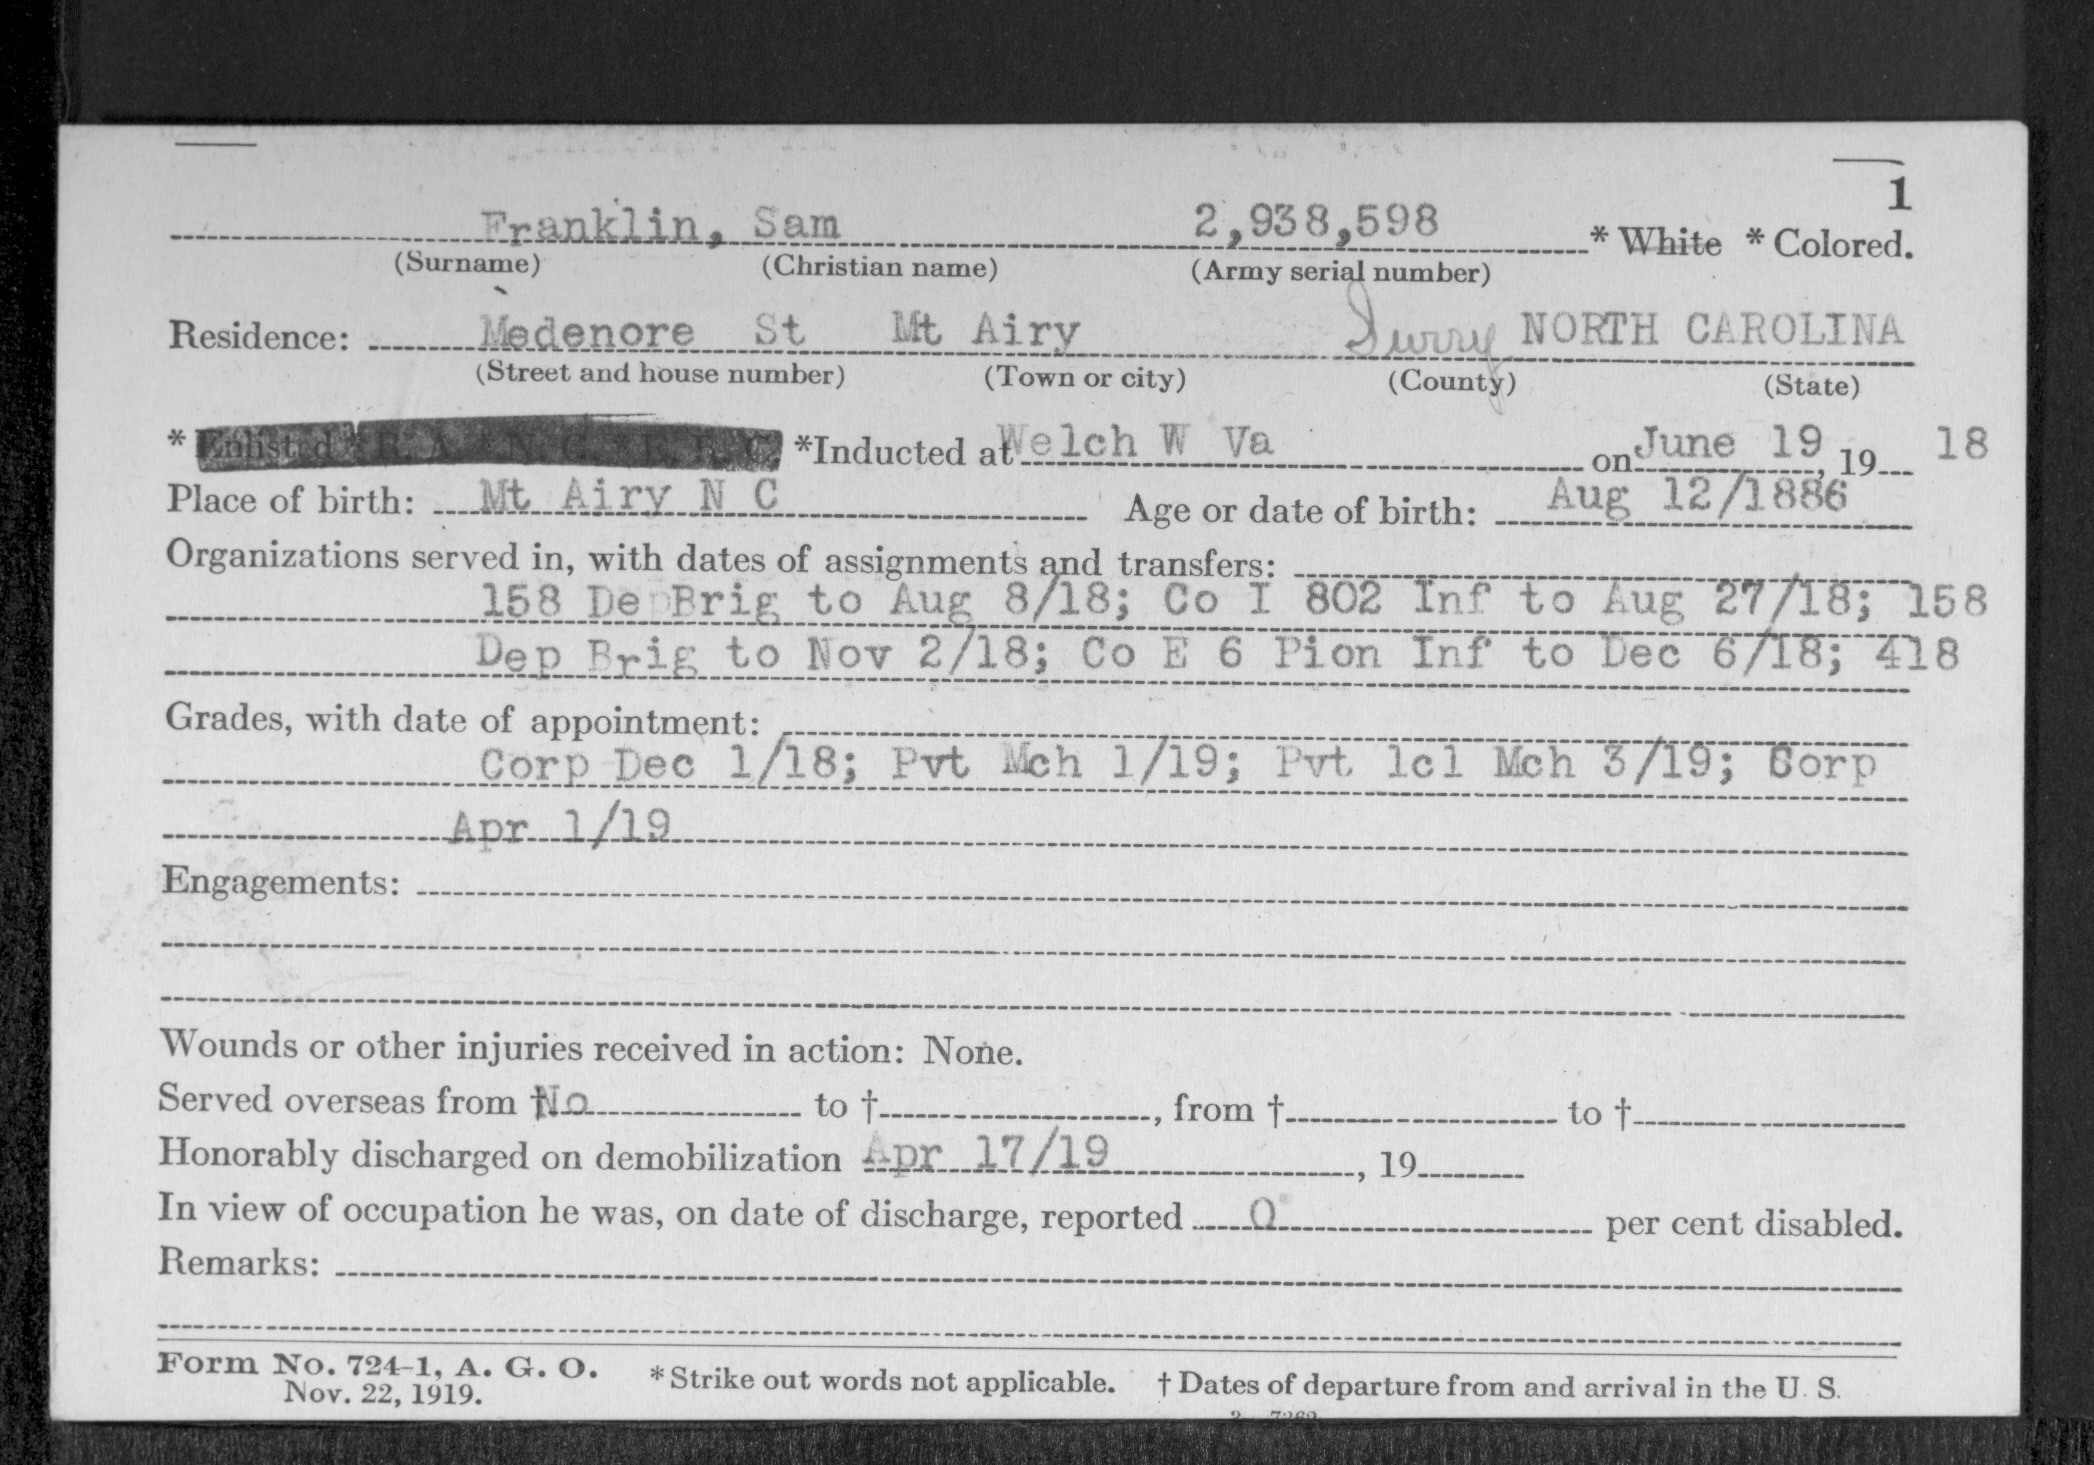 1
Franklin, Sam 2,938,598 * White * Colored.
(Surname) (Christian name) (Army serial number)
Residence: Medenore St Mt Airy Surry NORTH CAROLINA
(Street and house number) (Town or city) (County) (State)
* Enlisted * R. A. * N. G. * E. R. C. *Inducted at Welch W Va on June 19, 19 18
Place of birth: Mt Airy N C Age or date of birth: Aug 12/1886
Organizations served in, with dates of assignments and transfers:
158 Dep Brig to Aug 8/18; Co I 802 Inf to Aug 27/18; 158
Dep Brig to Nov 2/18; Co E 6 Pion Inf to Dec 6/18; 418
Grades, with date of appointment:
Corp Dec 1/18; Pvt Mch 1/19; Pvt 1cl Mch 3/19; Corp
Apr 1/19
Engagements:
Wounds or other injuries received in action: None.
Served overseas from † No to †, from † to †
Honorably discharged on demobilization Apr 17/19, 19
In view of occupation he was, on date of discharge, reported 0 per cent disabled.
Remarks:
Form No. 724-1, A. G. O. *Strike out words not applicable. † Dates of departure from and arrival in the U. S.
Nov. 22, 1919.